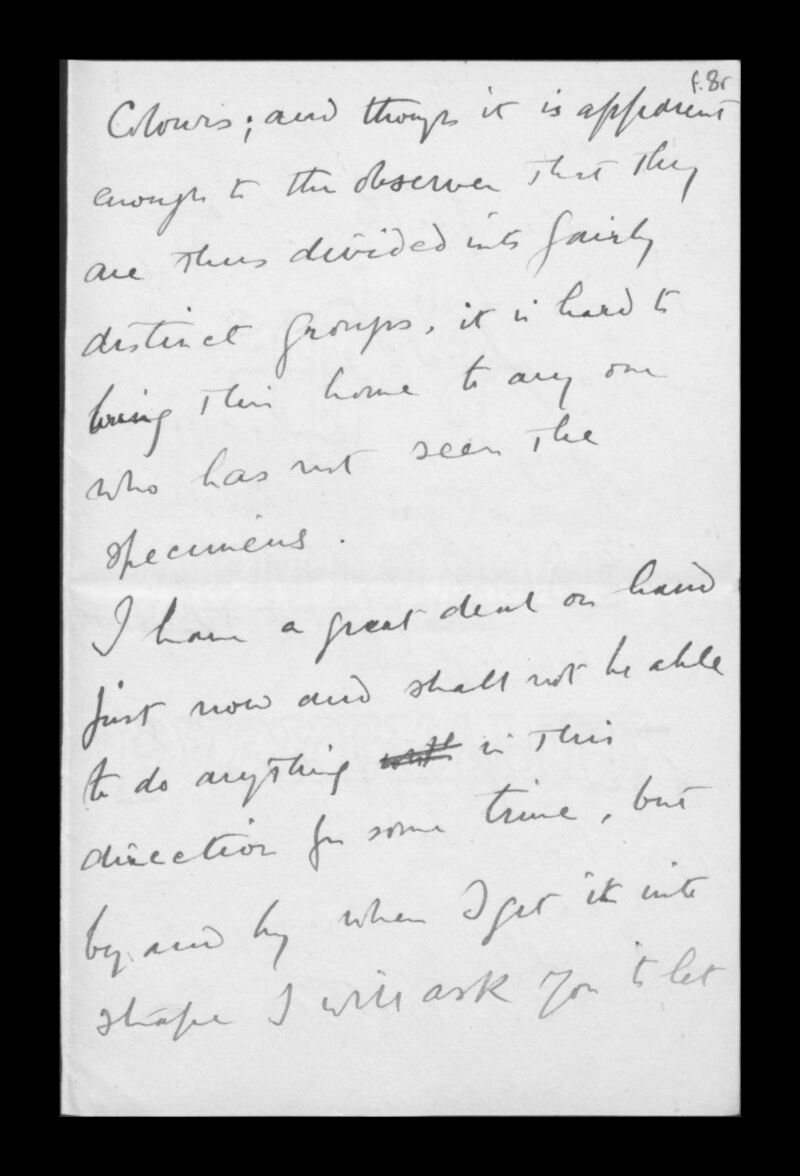 f.8r
Colours; and though it is apparent
enough to the observer that they
are thus divided into fairly
distinct groups, it is hard to
bring this home to any one
who has not seen the
specimens.
I have a great deal on hand
just now and shall not be able
to do anything with in this
direction for some time, but
by and by when I get it into
shape I will ask you to let